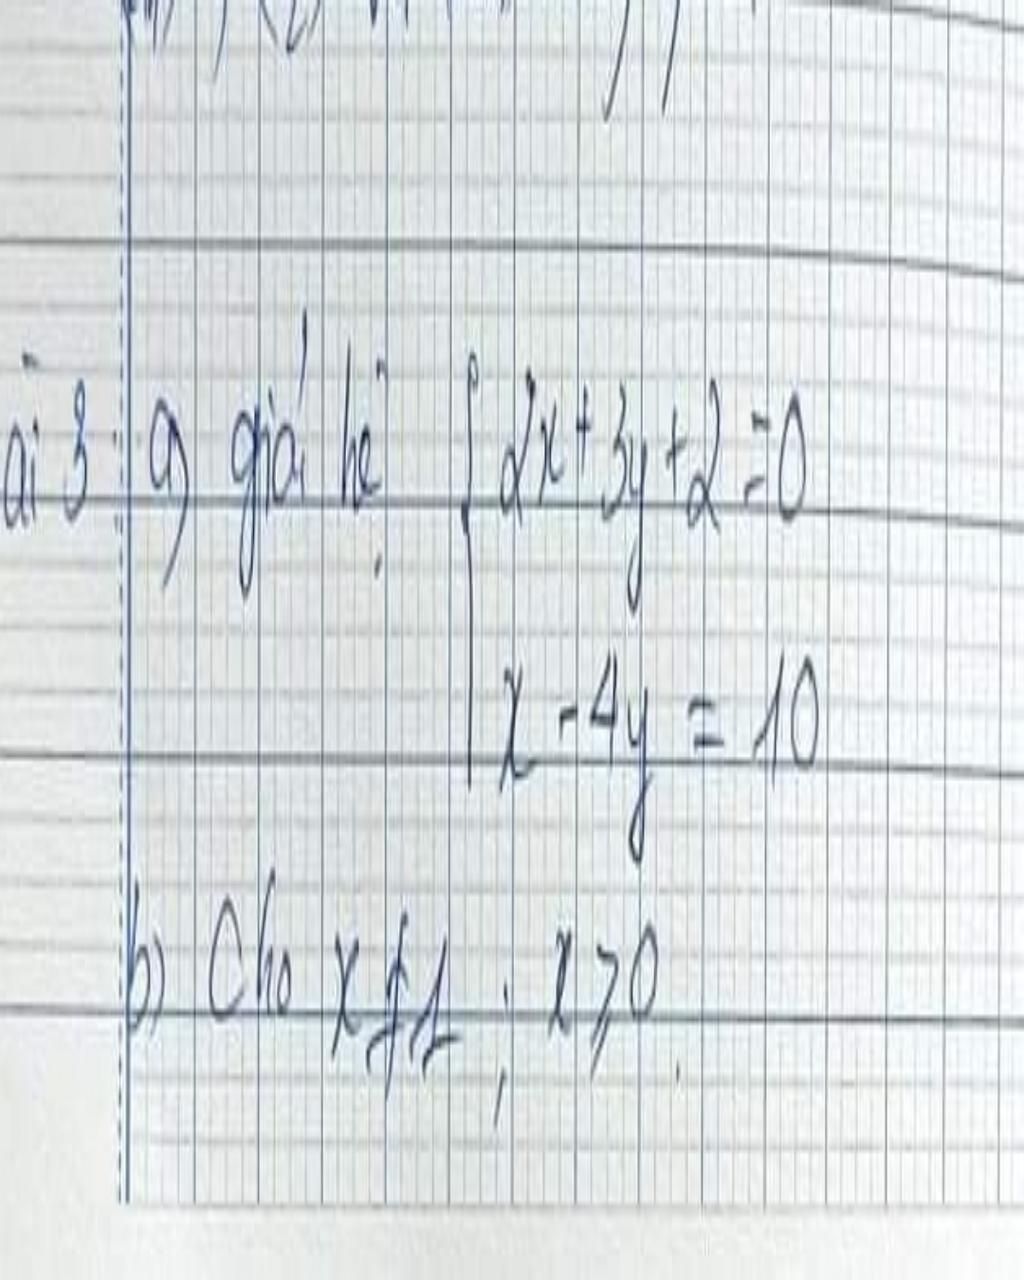 ài 3 a) giải hệ { 2x + 3y + 2 = 0
x - 4y = 10
b) Cho x ≠ 1 ; x ≥ 0.